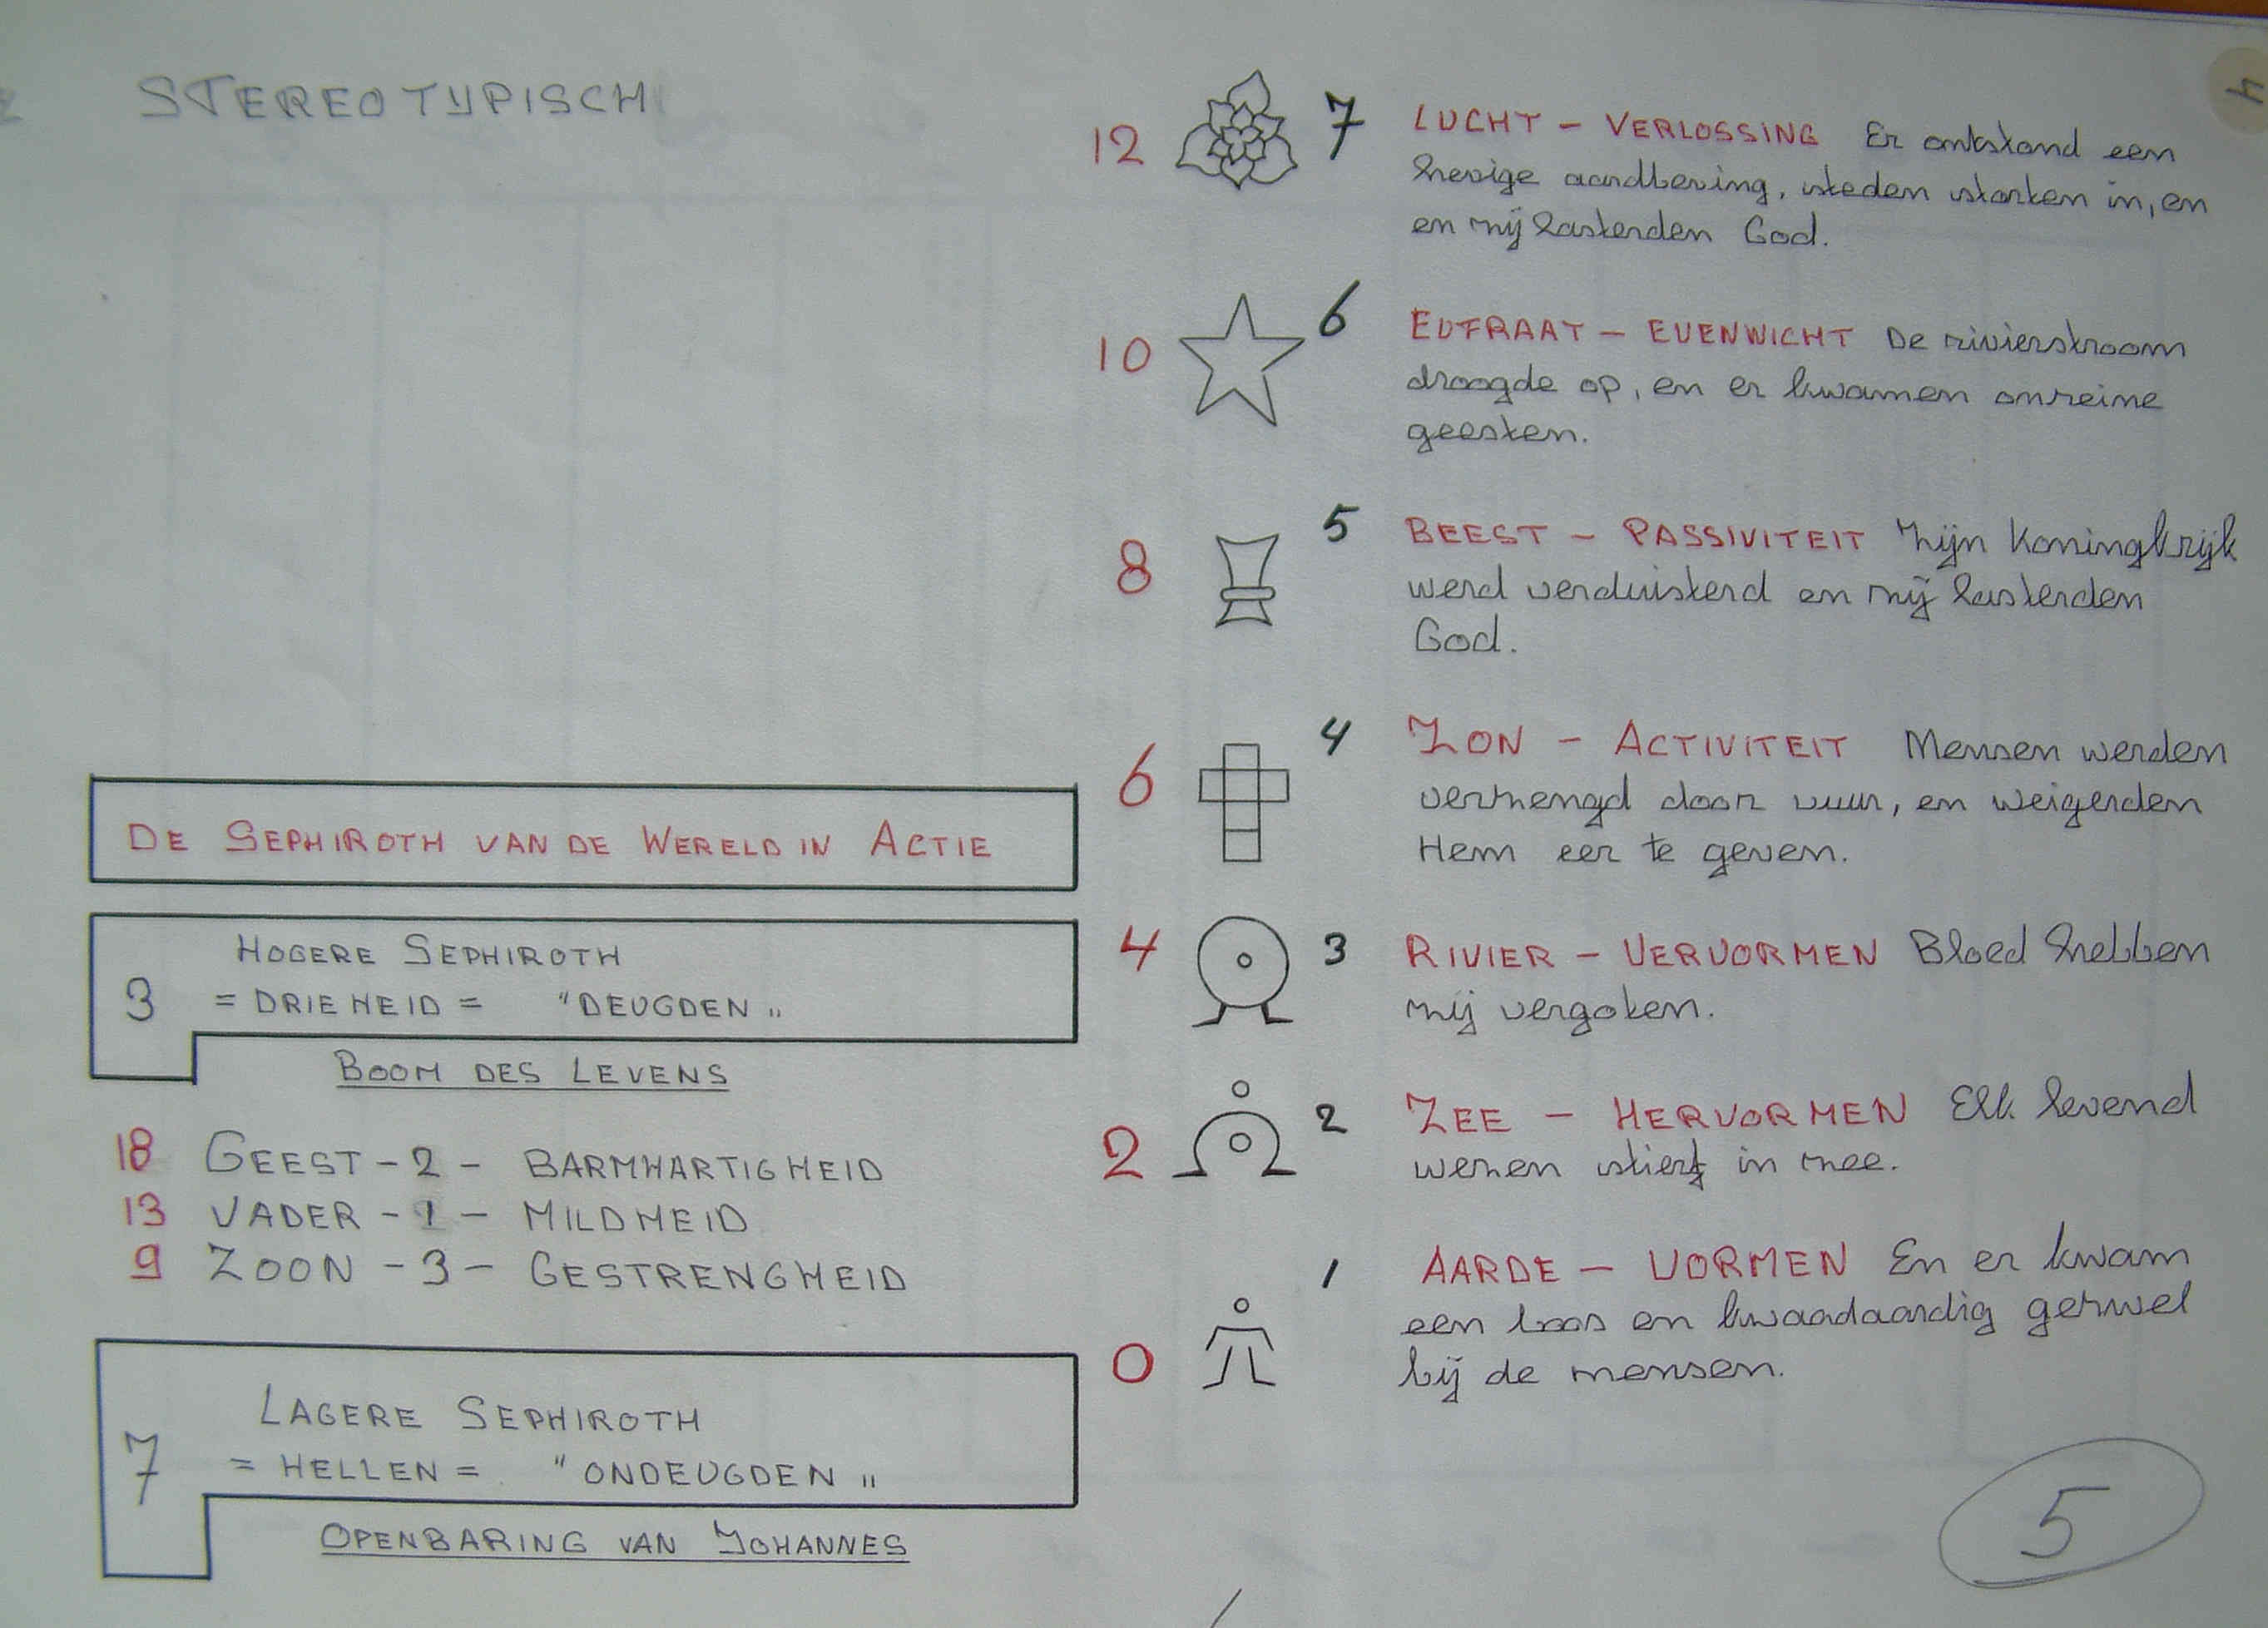 STEREOTYPISCH
DE SEPHIROTH VAN DE WERELD IN ACTIE
3
HOGERE SEPHIROTH
= DRIEHEID = "DEUGDEN"
BOOM DES LEVENS
18 GEEST - 2 - BARMHARTIGHEID
13 VADER - 1 - MILDHEID
9 ZOON - 3 - GESTRENGHEID
7
LAGERE SEPHIROTH
= HELLEN = "ONDEUGDEN"
OPENBARING VAN JOHANNES
12 7 LUCHT - VERLOSSING Er ontstond een
hevige aardbeving, steden storten in, en
en zij lasterden God.
10 6 EUFRAAT - EVENWICHT De rivierstroom
droogde op, en er kwamen onreine
geesten.
8 5 BEEST - PASSIVITEIT Zijn Koningkrijk
werd verduisterd en zij lasterden
God.
6 4 ZON - ACTIVITEIT Mensen werden
verzengd door vuur, en weigerden
Hem eer te geven.
4 3 RIVIER - VERVORMEN Bloed hebben
zij vergoten.
2 2 ZEE - HERVORMEN Elk levend
wezen stierf in zee.
0 1 AARDE - VORMEN En er kwam
een boos en kwaadaardig gezwel
bij de mensen.
5
4